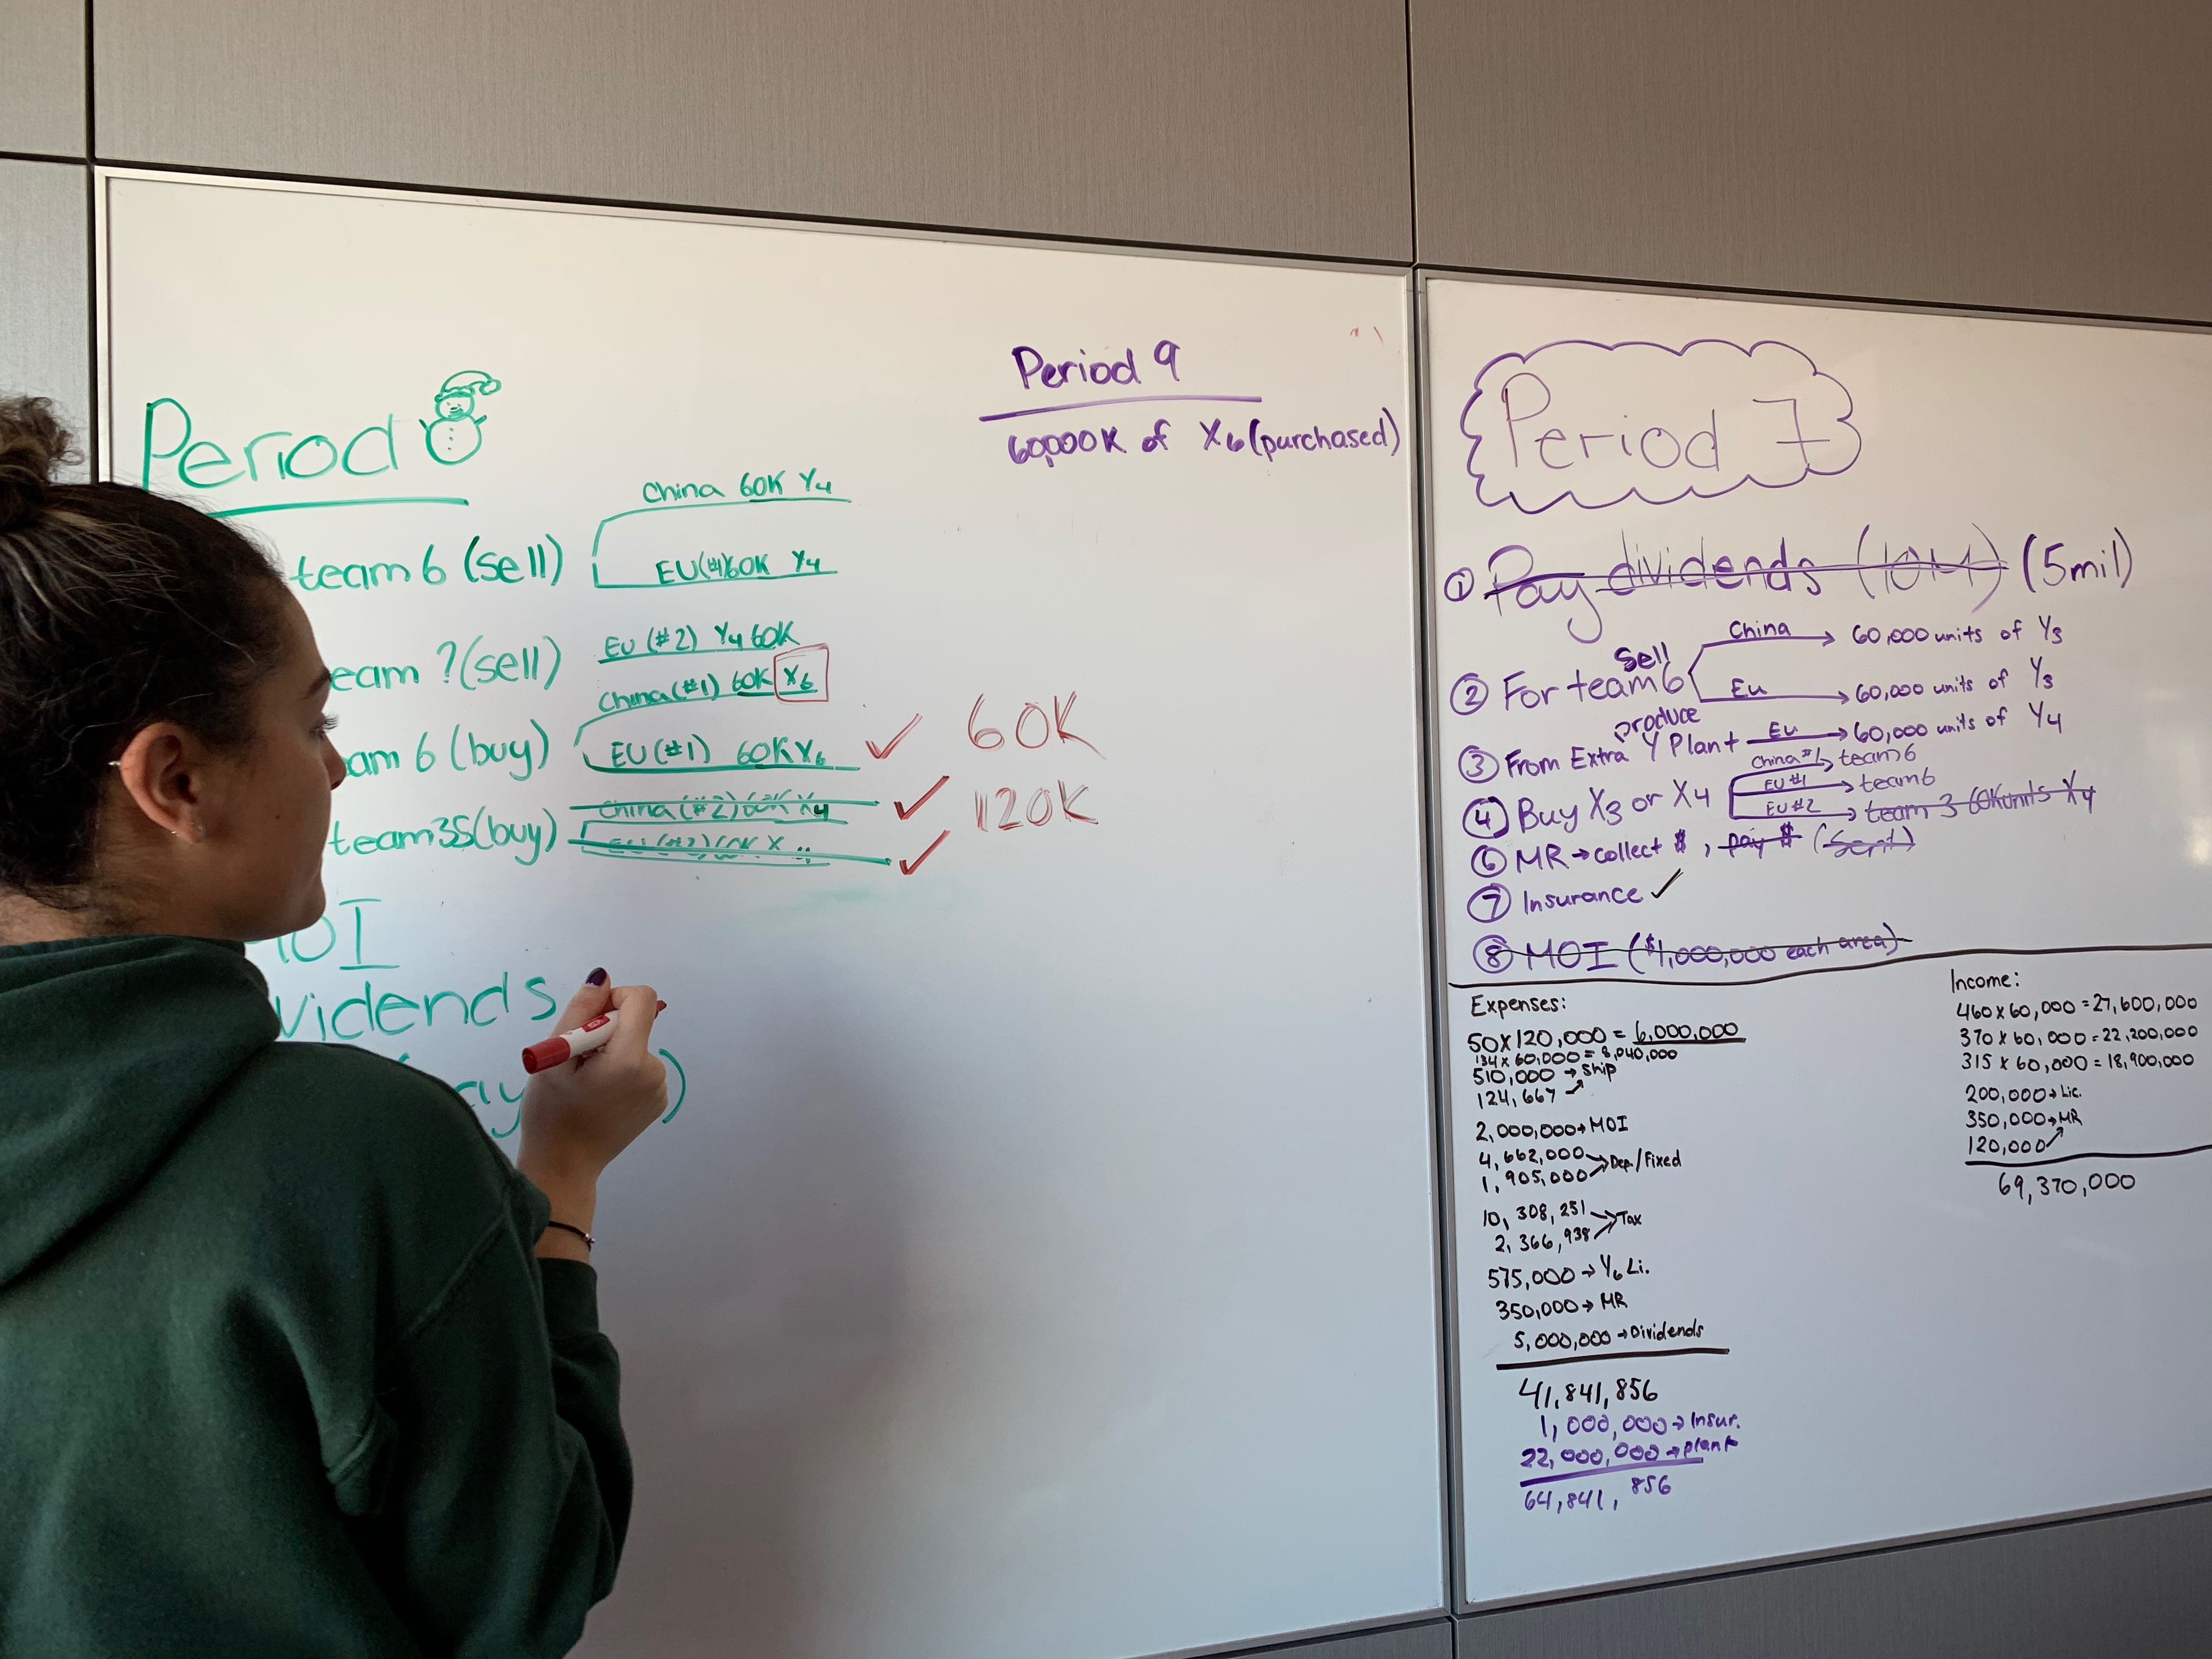 Period
team 6 (sell)
China 60K Y4
EU(#1)60K Y4
eam ?(sell)
EU (#2) Y4 60K
China(#1) 60K X6
am 6 (buy)
EU(#1) 60K X6
60K
team35(buy)
China(#2)60K X4
120K
MOI
vidends
ay )
Period 9
60,000K of X6 (purchased)
Period 7
① Pay dividends (10M) (5mil)
② For team 6
sell
China → 60,000 units of Y3
Eu → 60,000 units of Y3
③ From Extra Y Plant Eu → 60,000 units of Y4
produce
④ Buy X3 or X4
China #1 → team 6
EU #1 → team 6
EU #2 → team 3 60K units X4
⑥ MR → collect $, pay $ (Sent)
⑦ Insurance ✓
⑧ MOI ($1,000,000 each area)
Expenses:
50x120,000 = 6,000,000
134x60,000 = 8,040,000
510,000 → Ship
124,667
2,000,000 → MOI
4,662,000 → Dep./Fixed
1,905,000
10,308,251 → Tax
2,366,938
575,000 → Y6 Li.
350,000 → MR
5,000,000 → Dividends
41,841,856
1,000,000 → Insur.
22,000,000 → plant
64,841,856
Income:
460x60,000 = 27,600,000
370x60,000 = 22,200,000
315x60,000 = 18,900,000
200,000 → Lic.
350,000 → MR
120,000
69,370,000